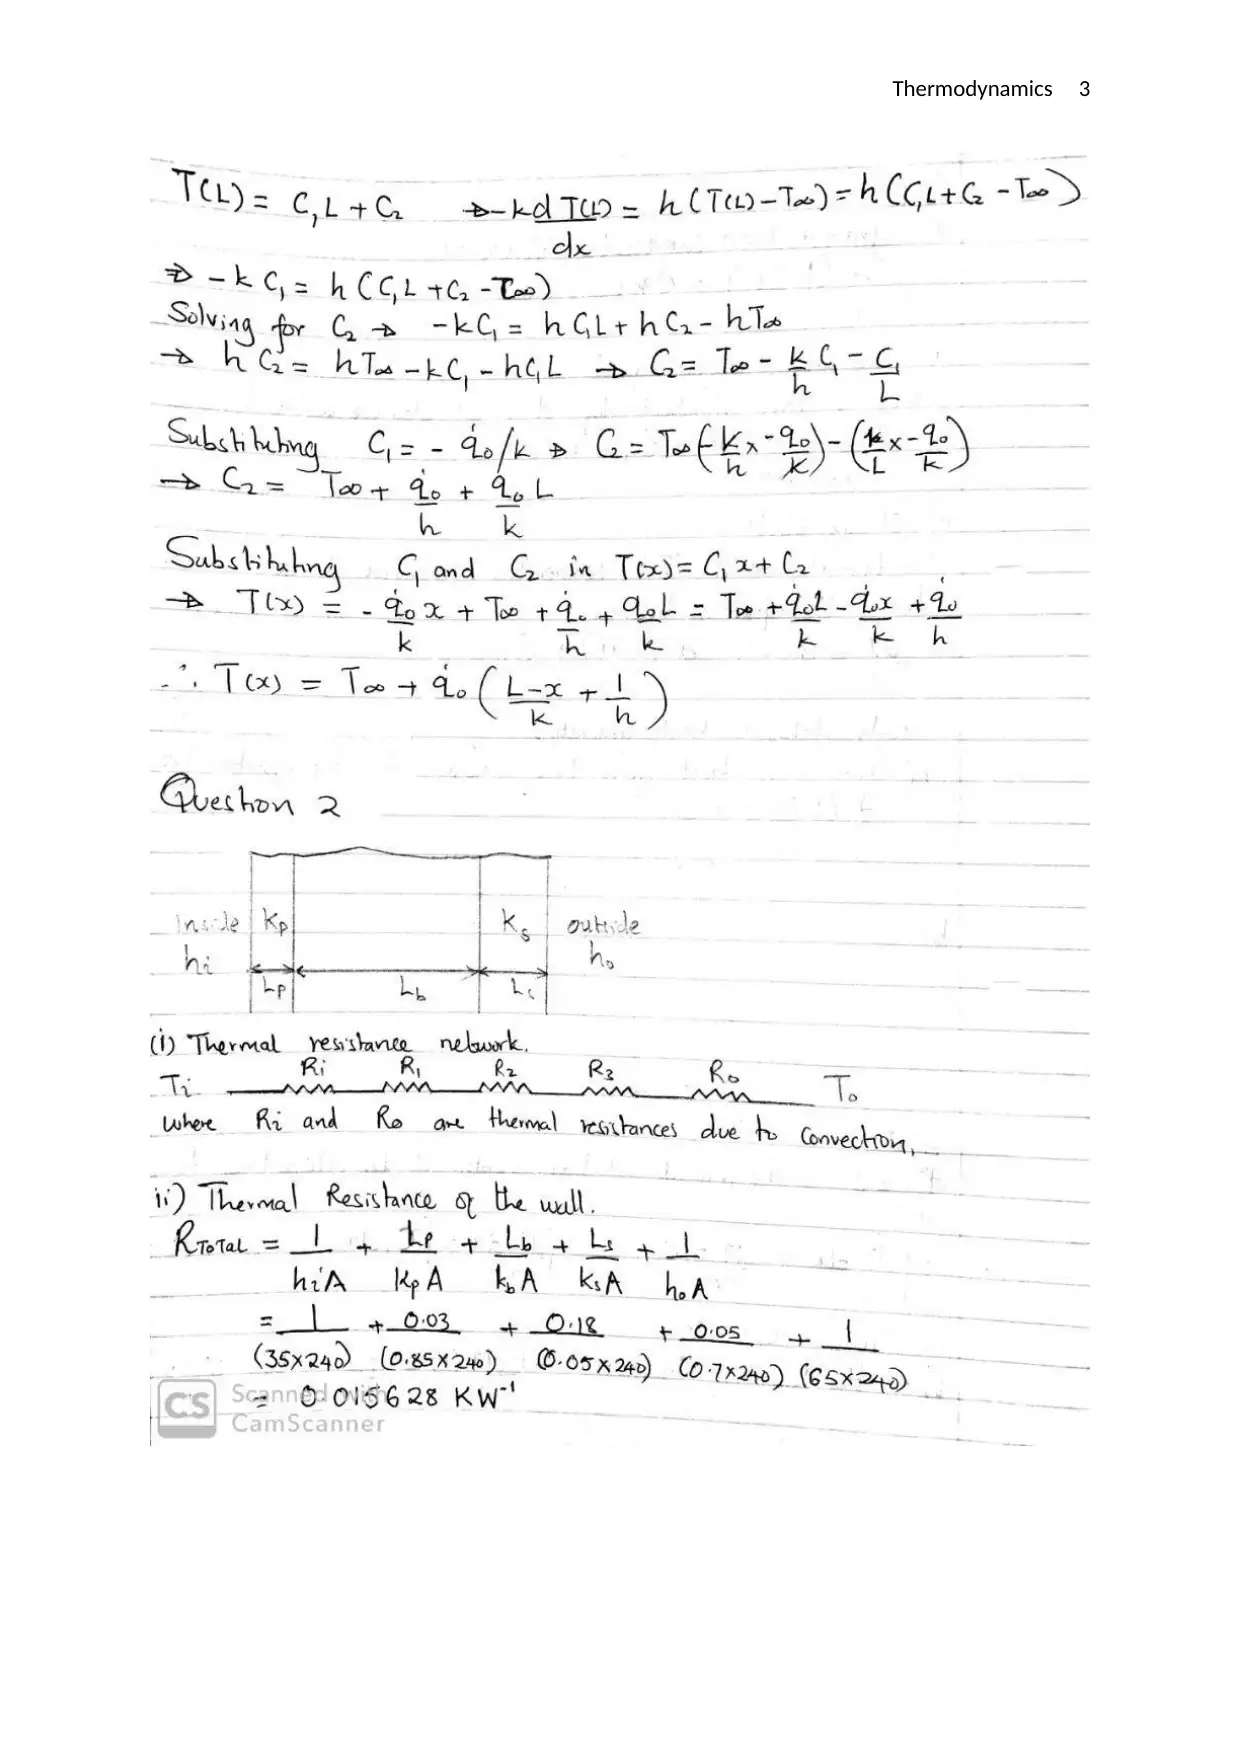 Thermodynamics 3
T(L) = C₁L + C₂ → -k dT(L)/dx = h(T(L) - T∞) = h(C₁L + C₂ - T∞)
⇒ -k C₁ = h(C₁L + C₂ - T∞)
Solving for C₂ → -kC₁ = hC₁L + hC₂ - hT∞
→ hC₂ = hT∞ - kC₁ - hC₁L → C₂ = T∞ - k/h C₁ - C₁/L
Substituting C₁ = - q̇₀/k ⇒ C₂ = T∞ (- k/h x - q̇₀/k) - (k/L x - q̇₀/k)
→ C₂ = T∞ + q̇₀/h + q̇₀L/k
Substituting C₁ and C₂ in T(x) = C₁x + C₂
→ T(x) = - q̇₀/k x + T∞ + q̇₀/h + q̇₀L/k = T∞ + q̇₀L/k - q̇₀x/k + q̇₀/h
∴ T(x) = T∞ + q̇₀ ( L-x/k + 1/h )
Question 2
Inside kp ks outside
hi ho
Lp Lb Ls
(i) Thermal resistance network.
Ri R₁ R₂ R₃ Ro
Ti To
where Ri and Ro are thermal resistances due to convection,
ii) Thermal Resistance of the wall.
RTOTAL = 1/hiA + Lp/kpA + Lb/kbA + Ls/ksA + 1/hoA
= 1/(35×240) + 0.03/(0.85×240) + 0.18/(0.05×240) + 0.05/(0.7×240) + 1/(65×240)
= 0.015628 KW⁻¹
CS Scanned with
CamScanner